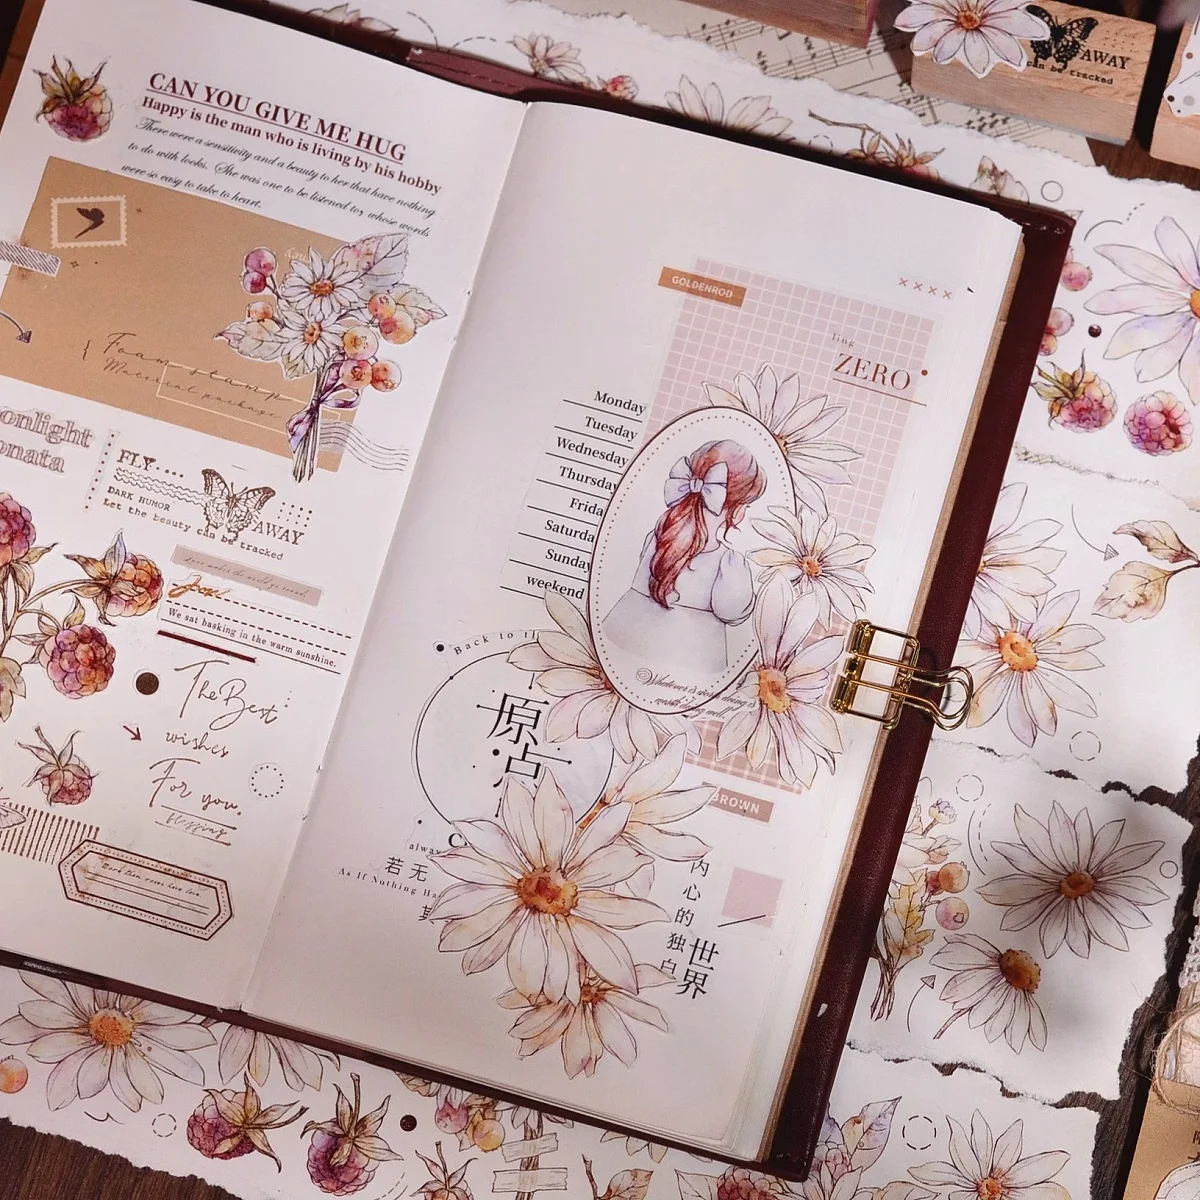 CAN YOU GIVE ME HUG
Happy is the man who is living by his hobby
There were a sensitivity and a beauty to her that have nothing
to do with looks. She was one to be listened to, whose words
were so easy to take to heart.
Foam stamp
Material package
onlight
onata
FLY
DARK HUMOR
AWAY
Let the beauty can be tracked
We sat basking in the warm sunshine.
The Best
wishes
For you
blessing
GOLDENROD
××××
ling
ZERO
Monday
Tuesday
Wednesday
Thursday
Frida
Saturda
Sunday
weekend
Back to th
原点
Whatever is worth doing is
worth doing well.
BROWN
alway
若无
As If Nothing Ha
其
内心的独白
世界
AWAY
can be tracked